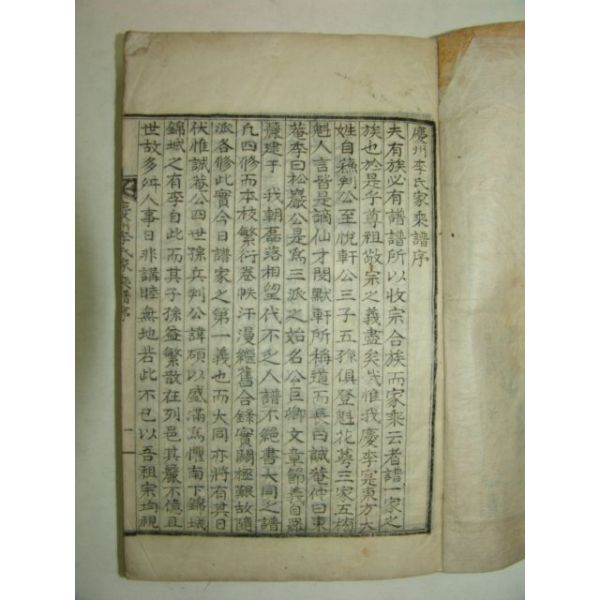 慶州李氏家乘譜序
夫有族必有譜譜所以收宗合族而家乘云者譜一家之
族也於是乎尊祖敬宗之義盡矣哉惟我慶李寔東方大
姓自蘓判公至悅軒公三子五孫俱登魁花萼三家五枝
魁人言皆是謫仙才閔默軒所稱道而長曰誠菴仲曰東
菴季曰松巖公是爲三派之始名公巨卿文章節義自
麗建于 我朝磊落相望代不乏人譜不絶書大同之譜
凡四修而本枝繁衍卷帙汗漫繼舊合錄實關極艱故隨
派各修此實今日譜家之第一義也而大同亦將有其日
伏惟誠菴公四世孫兵判公諱碩以盛滿爲懼南下錦城
錦城之有李自此而其子孫益繁散在列邑其麗不億且
世故多舛人事日非講睦無地若此不已以吾祖宗均視
慶州李氏家乘譜序
一